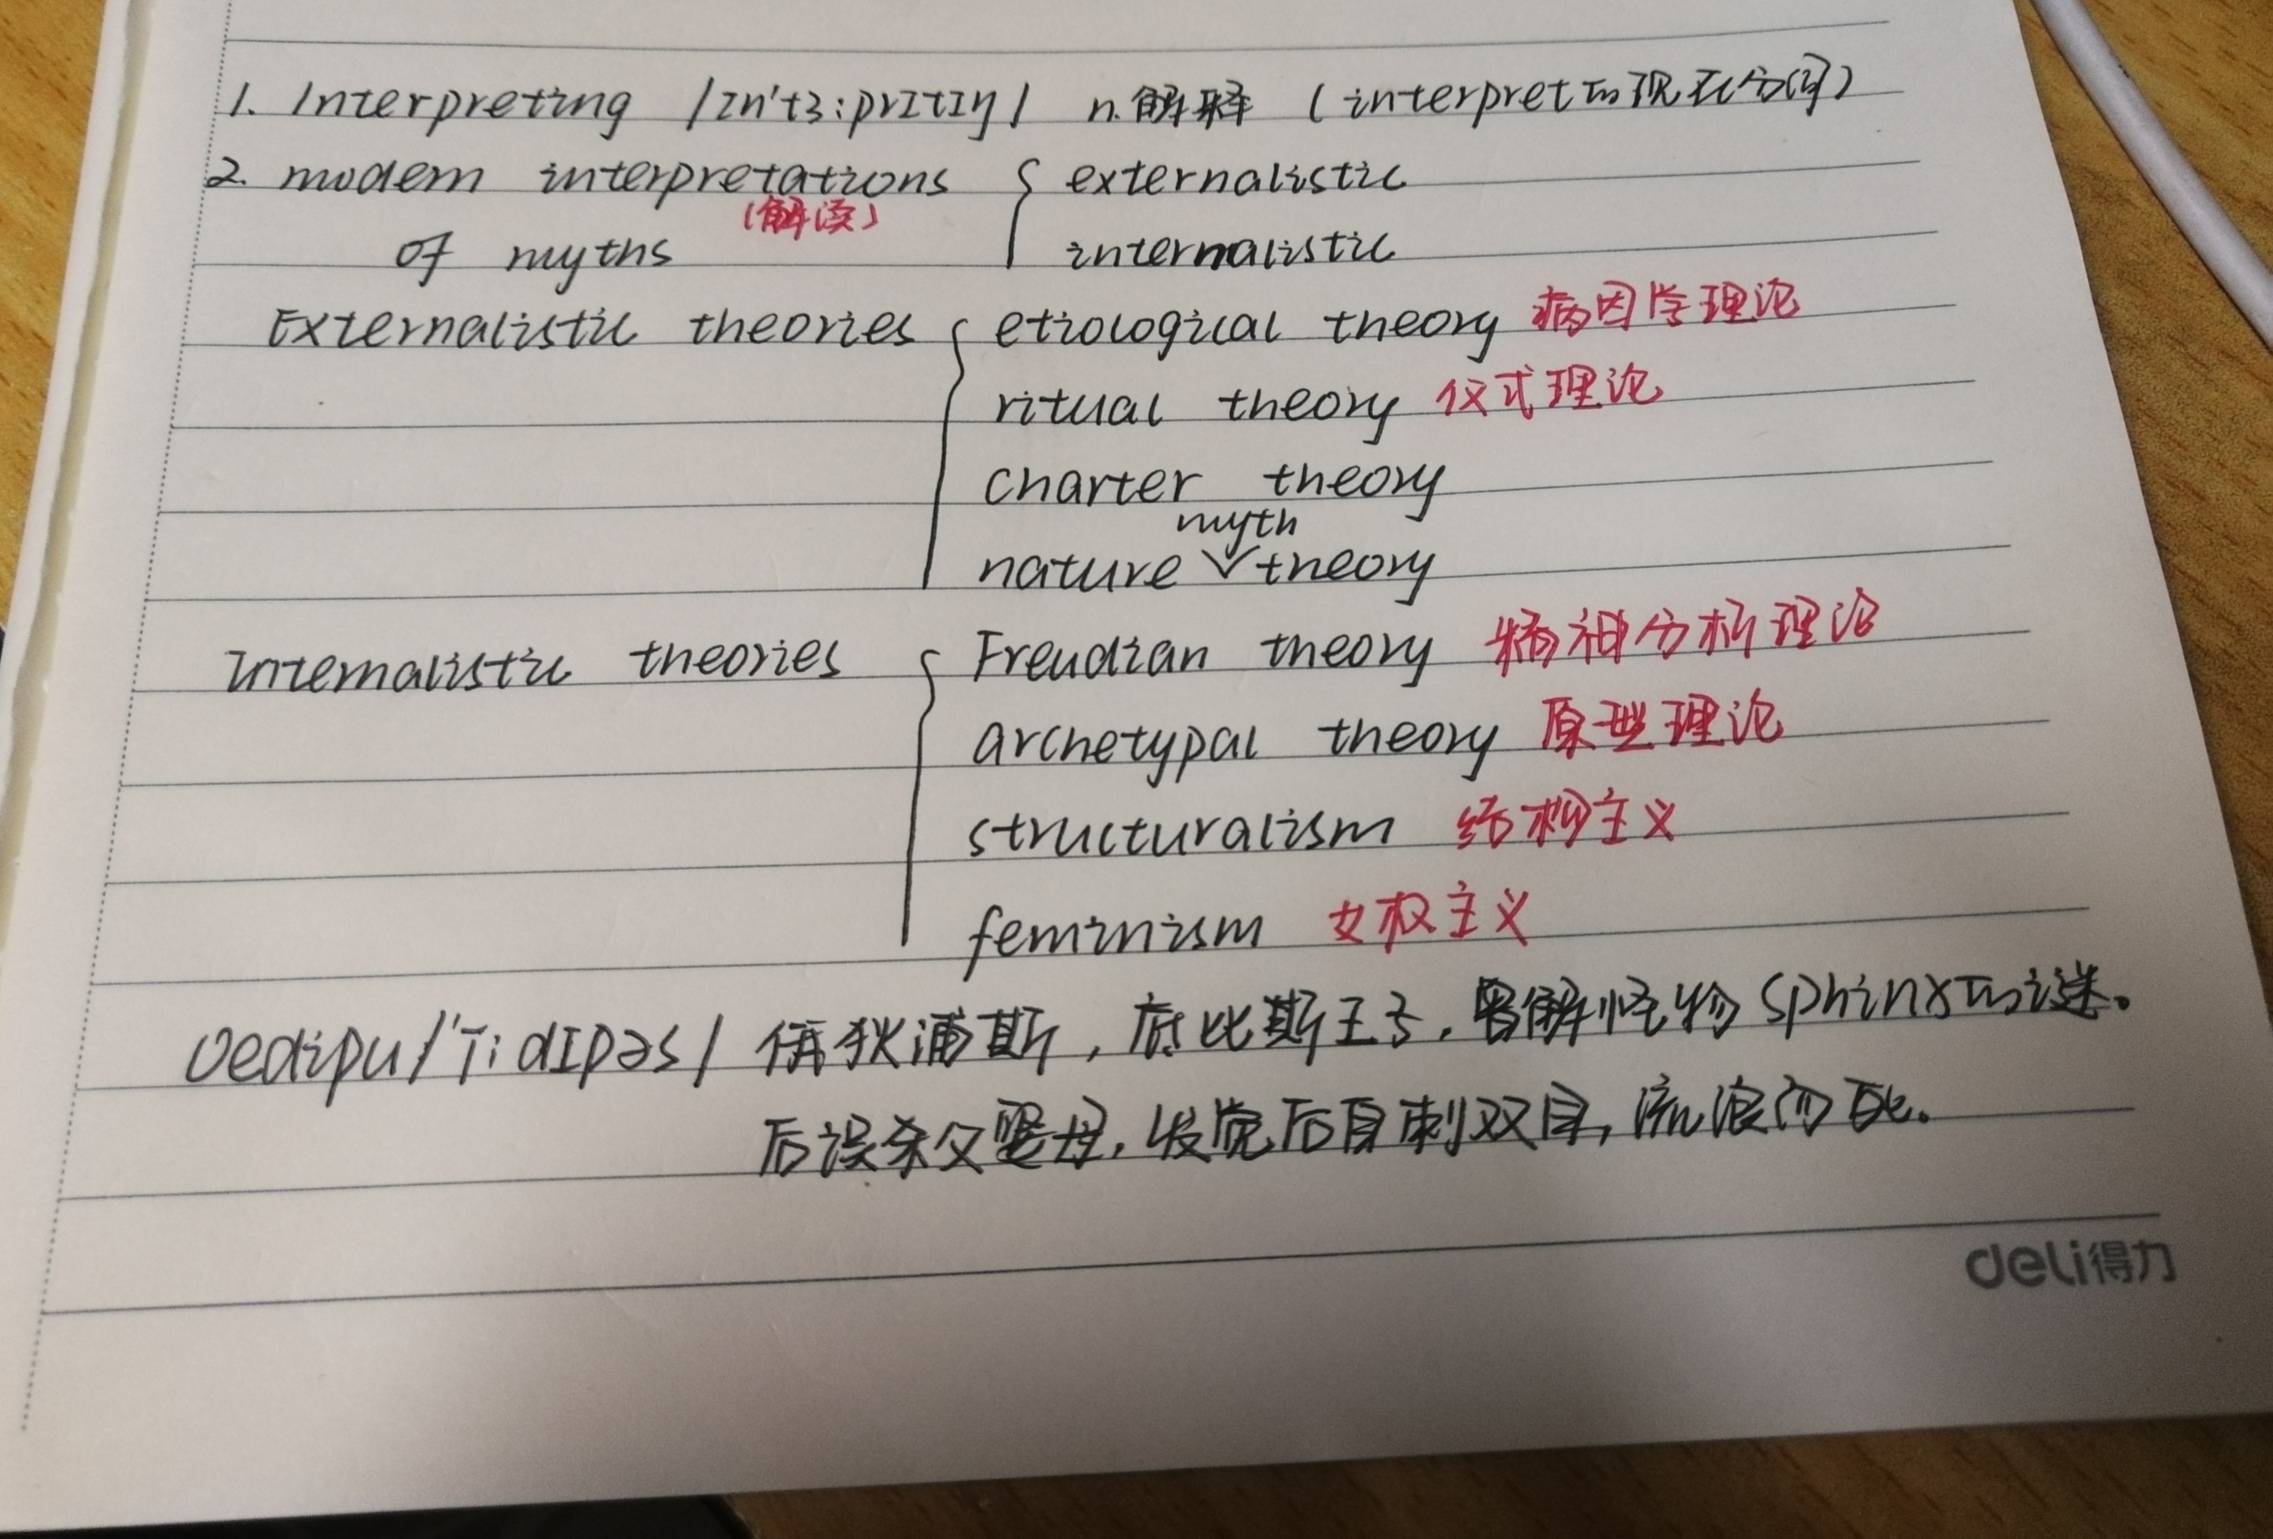 1. Interpreting /ɪn'tɜ:prɪtɪŋ/ n.解释 (interpret的现在分词)
2. modern interpretations { externalistic
(解读)
of myths internalistic
Externalistic theories { etiological theory 病因学理论
ritual theory 仪式理论
charter theory
myth
nature ∨ theory
Internalistic theories { Freudian theory 精神分析理论
archetypal theory 原型理论
structuralism 结构主义
feminism 女权主义
Oedipu/'i:dɪpəs/ 俄狄浦斯,底比斯王子,曾解怪物Sphinx的谜。
后误杀父娶母,发觉后自刺双目,流浪而死。
deli得力